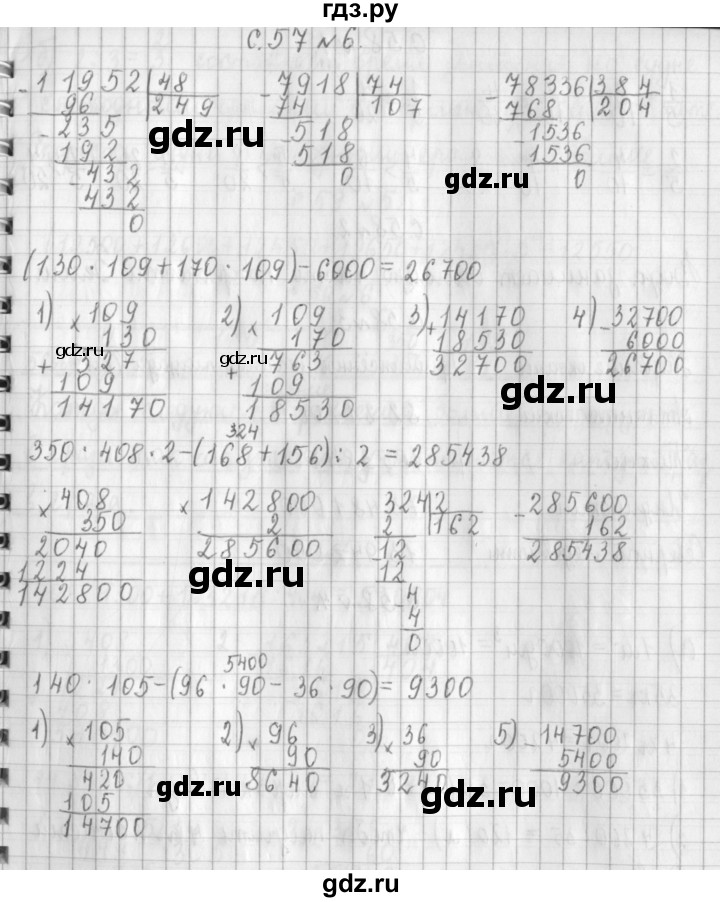 гдз.ру
С.57 №6.
- 11952 | 48    - 7918 | 74    - 78336 | 384
96 | 249    74 | 107    768 | 204
- 235    - 518    - 1536
192    518    1536
- 432    0    0
432
0
gdz.ru gdz.ru
gdz.ru
(130 · 109 + 170 · 109) - 6000 = 26700
1) × 109    2) × 109    3) + 14170    4) - 32700
130    170    18530    6000
+ 327    + 763    32700    26700
109    109
14170    18530
gdz.ru gdz.ru gdz.ru
324
350 · 408 · 2 - (168 + 156) : 2 = 285438
× 408    × 142800    324 | 2    - 285600
350    2    2 | 162    162
2040    285600    12    285438
1224    12
142800    - 4
4
0
gdz.ru gdz.ru
5400
140 · 105 - (96 · 90 - 36 · 90) = 9300
1) × 105    2) × 96    3) × 36    5) - 14700
140    90    90    5400
420    8640    3240    9300
105
14700
gdz.ru gdz.ru
gdz.ru